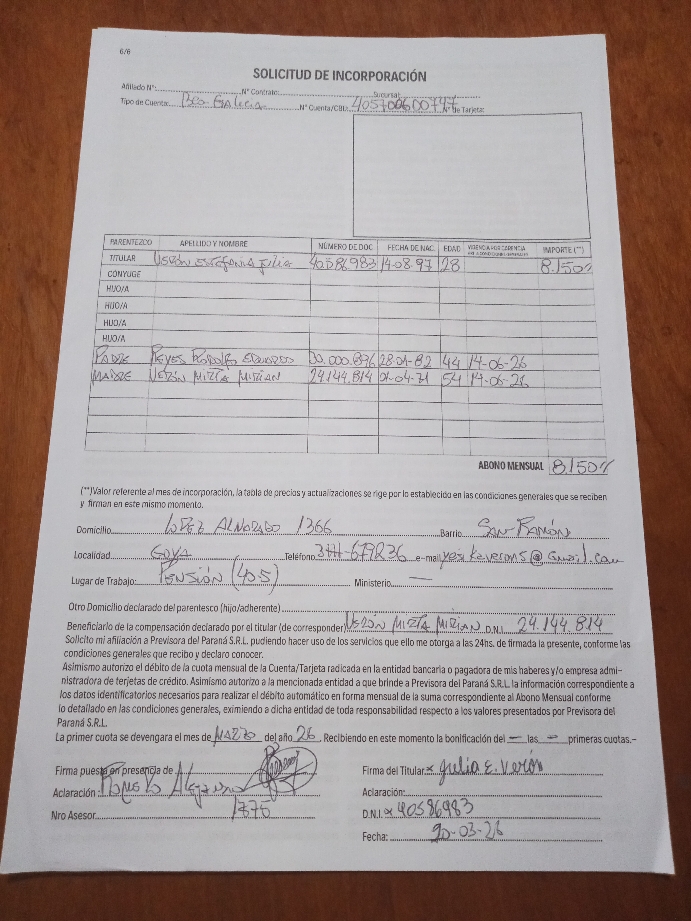 6/6
SOLICITUD DE INCORPORACIÓN
Afiliado N°: N° Contrato: Sucursal:
Tipo de Cuenta: Bco. Galicia N° Cuenta/CBU: 405700600747 N° de Tarjeta:
PARENTEZCO APELLIDO Y NOMBRE NÚMERO DE DOC. FECHA DE NAC. EDAD VIGENCIA POR CARENCIA IMPORTE (**)
TITULAR Verón Estefania Julia 40.586.983 14-08-97 28 8.150%
CÓNYUGE
HIJO/A
HIJO/A
HIJO/A
HIJO/A
PADRE REYES RODOLFO EDUARDO 30.000.896 28-01-82 44 14-06-26
MADRE VERÓN MIRTA MIRIAN 24.144.814 01-04-71 54 14-06-26
ABONO MENSUAL 8.150%
(**)Valor referente al mes de incorporación, la tabla de precios y actualizaciones se rige por lo establecido en las condiciones generales que se reciben
y firman en este mismo momento.
Domicilio LOPEZ ALVARADO 1366 Barrio San Ramón
Localidad GOYA Teléfono e-mail
Lugar de Trabajo: PENSIÓN (405) Ministerio —
Otro Domicilio declarado del parentesco (hijo/adherente)
Beneficiario de la compensación declarado por el titular (de corresponder) VERÓN MIRTA MIRIAN D.N.I. 24.144.814
Solicito mi afiliación a Previsora del Paraná S.R.L. pudiendo hacer uso de los servicios que ello me otorga a las 24hs. de firmada la presente, conforme las
condiciones generales que recibo y declaro conocer.
Asimismo autorizo el débito de la cuota mensual de la Cuenta/Tarjeta radicada en la entidad bancaria o pagadora de mis haberes y/o empresa admi-
nistradora de terjetas de crédito. Asimismo autorizo a la mencionada entidad a que brinde a Previsora del Paraná S.R.L. la información correspondiente a
los datos identificatorios necesarios para realizar el débito automático en forma mensual de la suma correspondiente al Abono Mensual conforme
lo detallado en las condiciones generales, eximiendo a dicha entidad de toda responsabilidad respecto a los valores presentados por Previsora del
Paraná S.R.L.
La primer cuota se devengara el mes de MARZO del año 26, Recibiendo en este momento la bonificación del — las — primeras cuotas.-
Firma puesta en presencia de
Aclaración:
Nro Asesor 1775
Firma del Titular x Julia E. Verón
Aclaración:
D.N.I. x 40586983
Fecha: 20-03-26